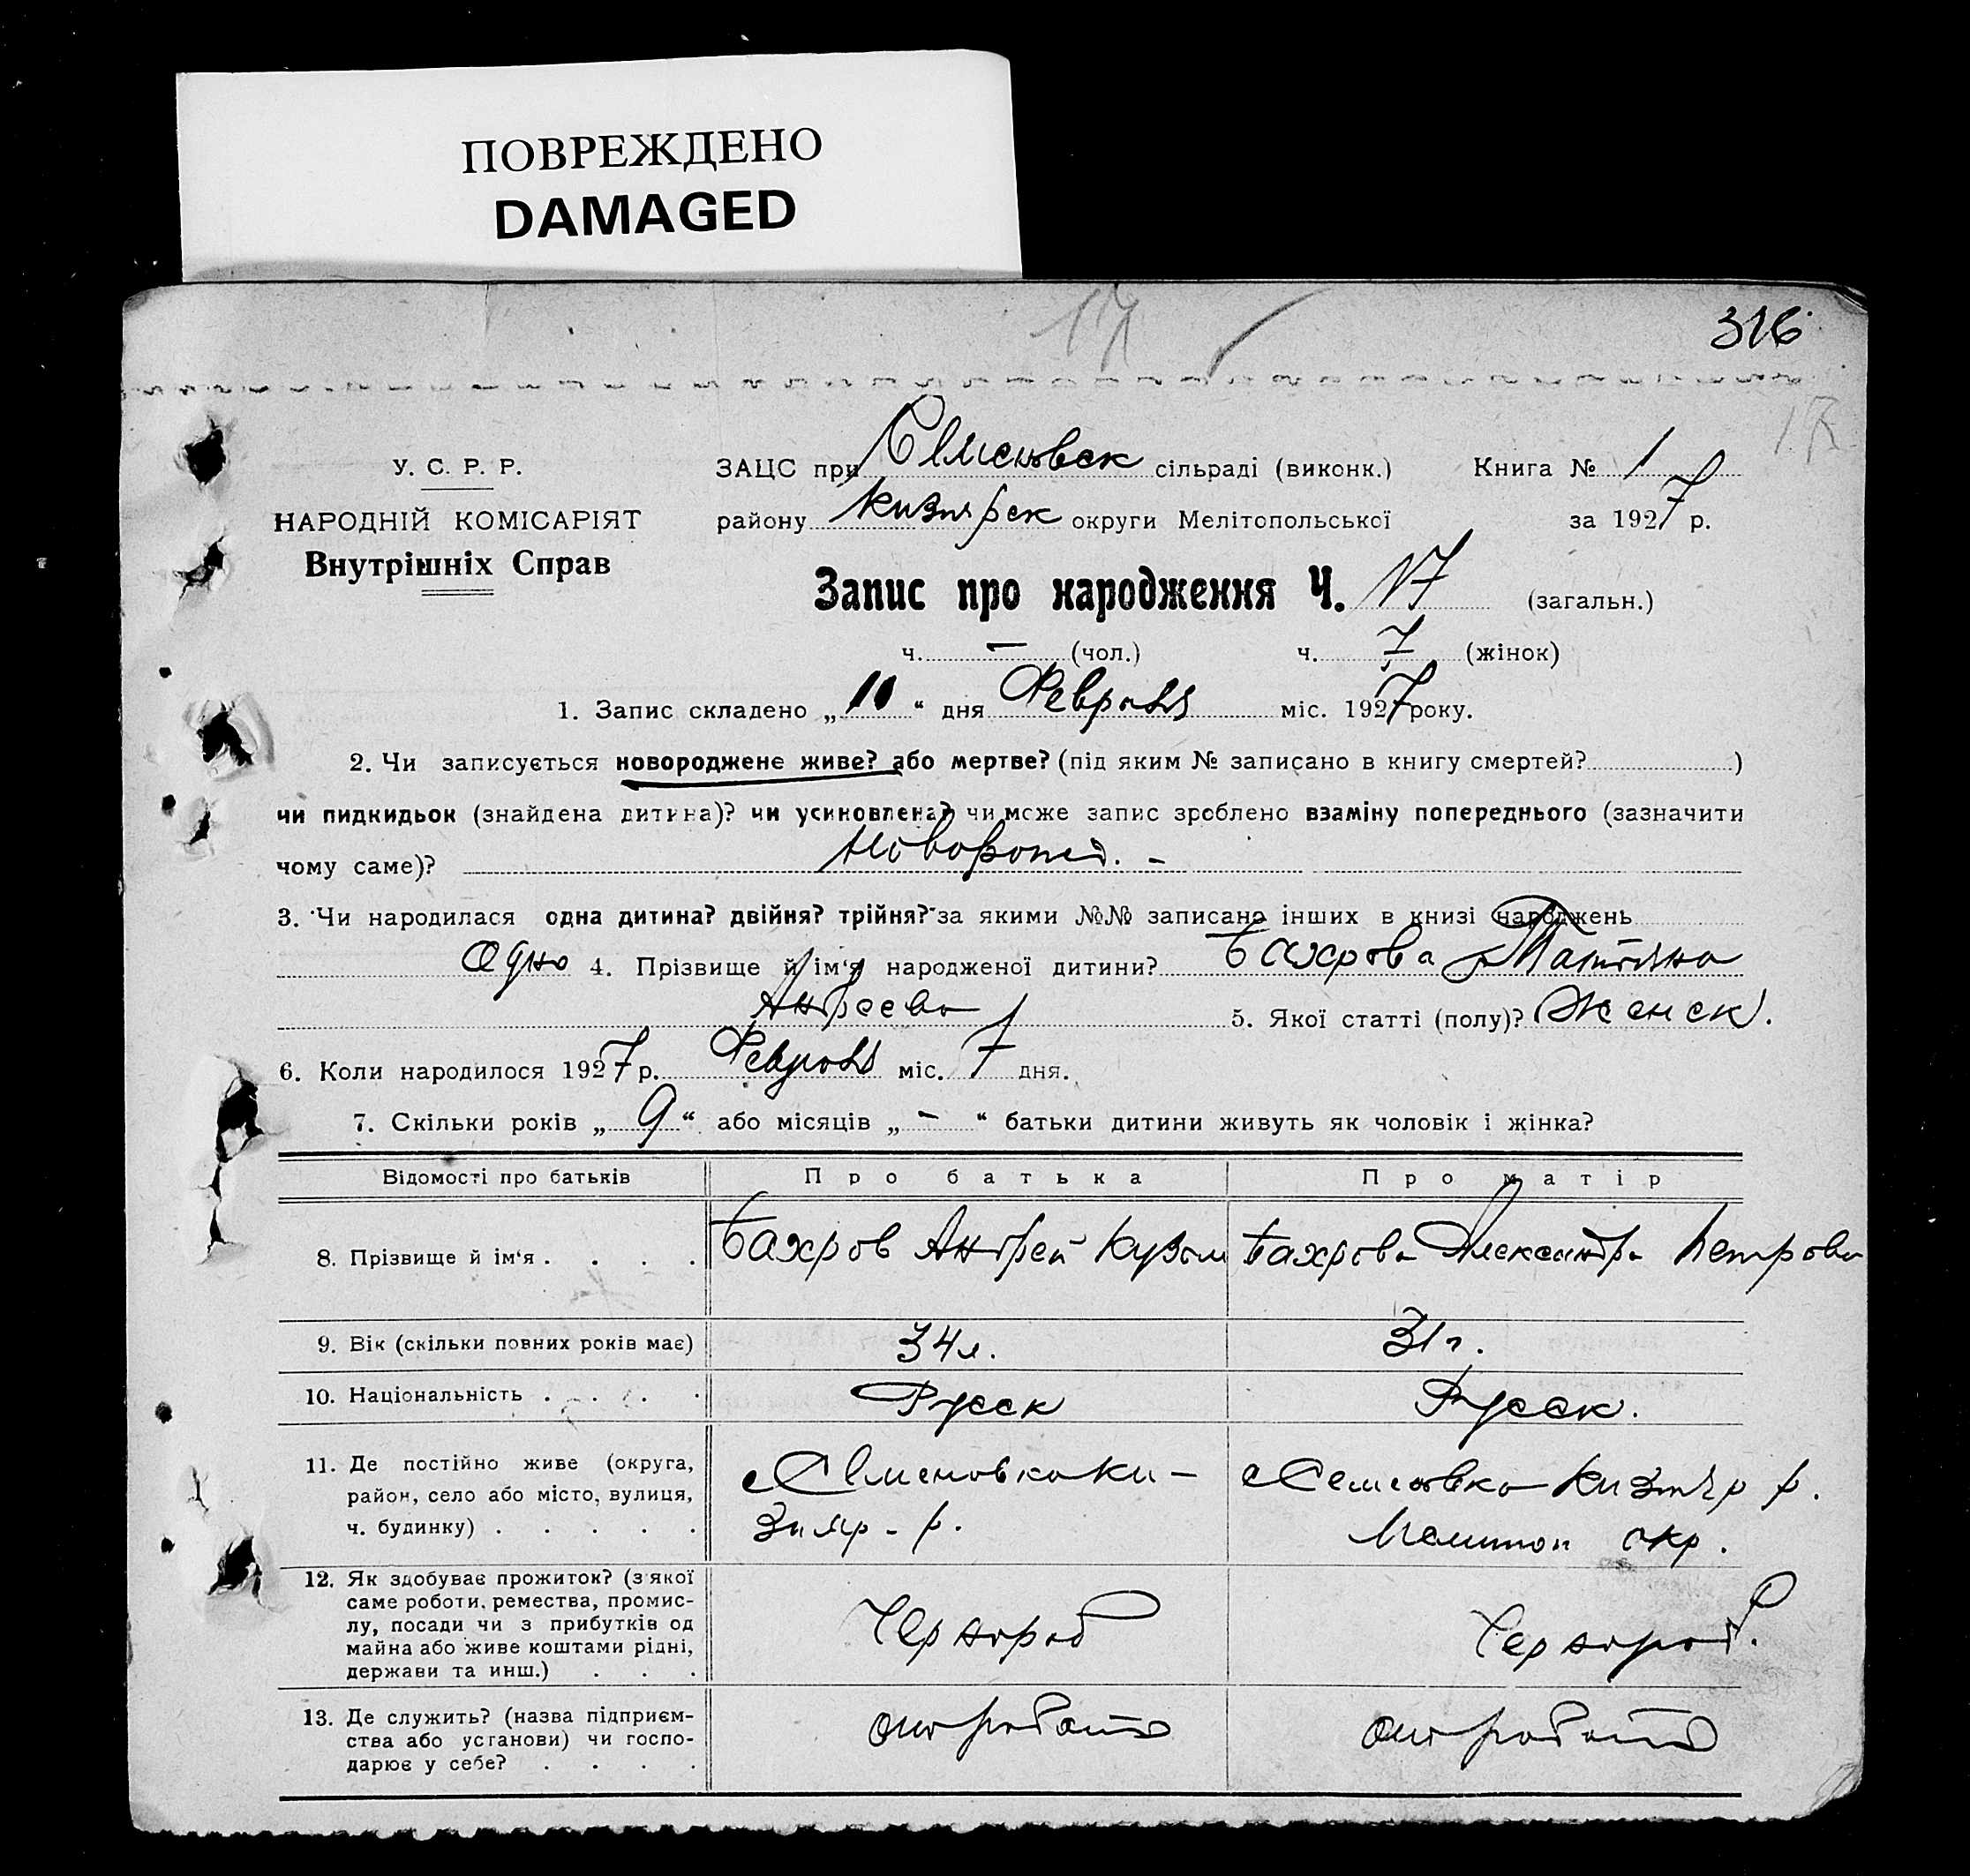 ПОВРЕЖДЕНО
DAMAGED
17
316
17
У. С. Р. Р.
НАРОДНІЙ КОМІСАРІЯТ
Внутрішніх Справ
ЗАЦС при Семеновск сільраді (виконк.) Книга № 1
району Кизиярск округи Мелітопольської за 1927 р.
Запис про народження Ч. 17 (загальн.)
ч. — (чол.) ч. 7 (жінок)
1. Запис складено „10“ дня Февраля міс. 1927 року.
2. Чи записується новороджене живе? або мертве? (під яким № записано в книгу смертей? )
чи пидкидьок (знайдена дитина)? чи усиновлена? чи може запис зроблено взаміну попереднього (зазначити
чому саме)? Новорожд. -
3. Чи народилася одна дитина? двійня? трійня? за якими №№ записано інших в книзі народжень
Одно 4. Прізвище й ім‘я народженої дитини? Бахрова Татьяна
Андреева 5. Якої статті (полу)? Женск.
6. Коли народилося 1927 р. Февраля міс. 7 дня.
7. Скільки років „9“ або місяців „-“ батьки дитини живуть як чоловік і жінка?
Відомості про батьків Про батька Про матір
8. Прізвище й ім‘я . . . . Бахров Андрей Кузьм Бахрова Александра Петрова
9. Вік (скільки повних років має) 34 л. 31 г.
10. Національність . . . . Русск Русск.
11. Де постійно живе (округа,
район, село або місто, вулиця,
ч. будинку) . . . . .
с Семеновка Ки-
зияр - р.
с Семеновка Кизияр р.
Мелитоп окр.
12. Як здобуває прожиток? (з якої
саме роботи, ремества, промис-
лу, посади чи з прибутків од
майна або живе коштами рідні,
держави та инш.) . . .
Чернораб
Чернораб.
13. Де служить? (назва підприєм-
ства або установи) чи госпо-
дарює у себе? . . . .